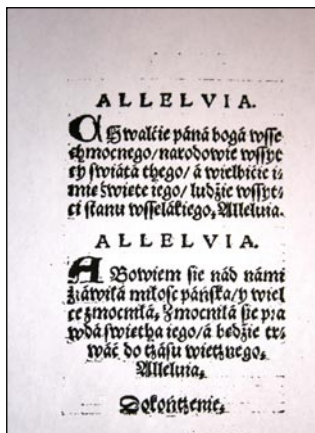 ALLELVIA.
CHwalćie páná bogá wsse
chmocnego/narodowie wssyt
cy swiátá thego/á wielbićie i⸗
mie swiete iego/ludźie wssyt⸗
ci stanu wsselákiego, Alleluia.
ALLELVIA.
ABowiem sie nád námi
ziáwiłá miłosc páńska/y wiel
ce zmocniłá, Zmocniłá sye pra
wdá swietha iego/á bedźie trw
wáć do cżásu wiecżnego,
Alleluia,
Dokońcżenie,